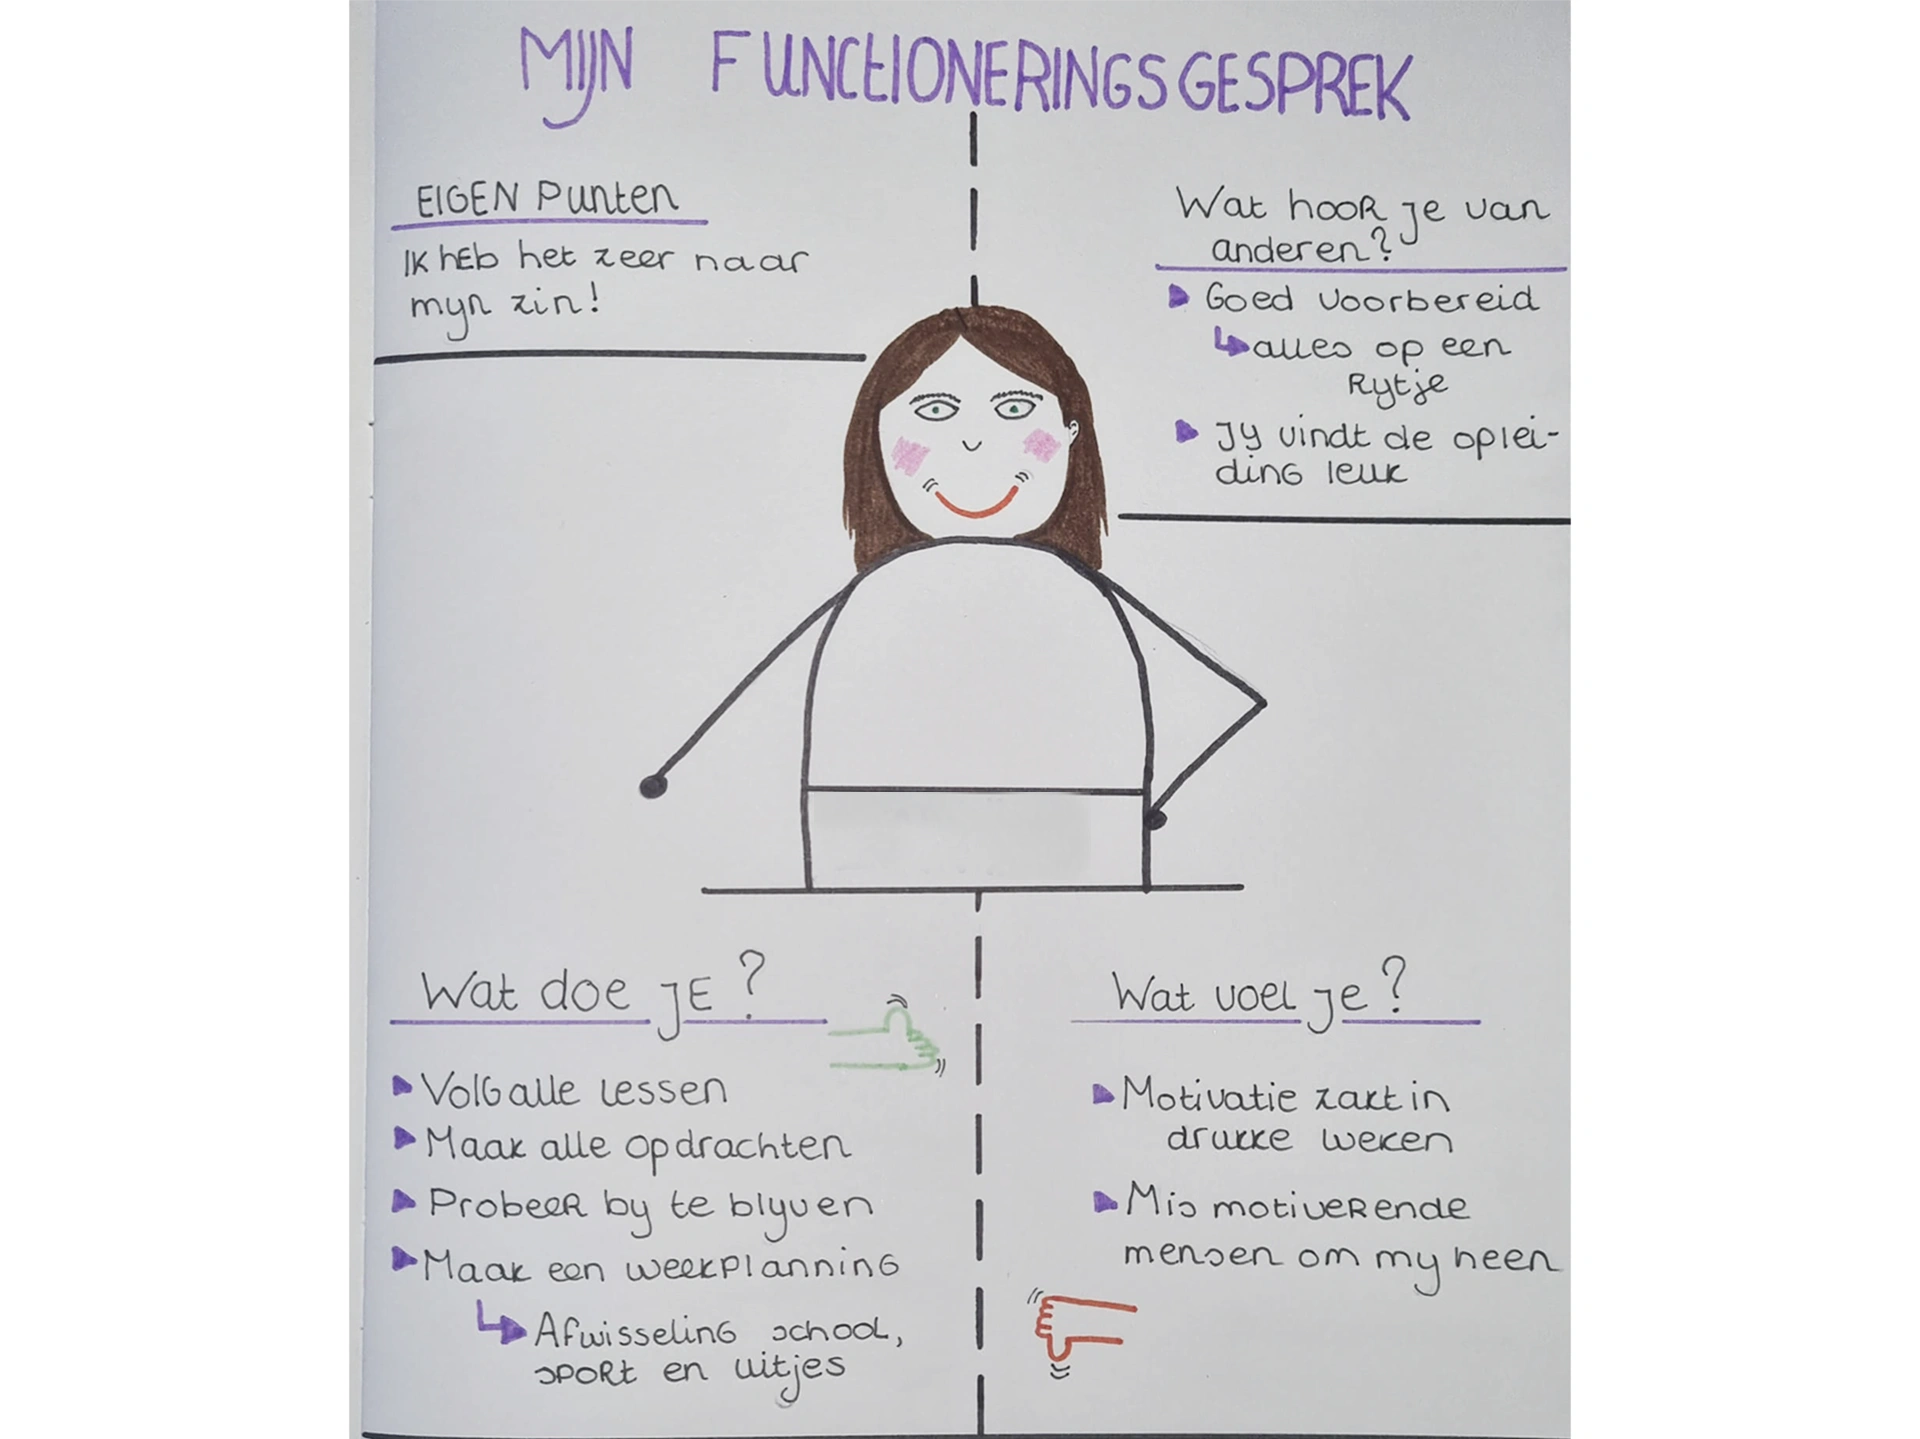 MIJN FUNCTIONERINGSGESPREK
EIGEN Punten
IK hEb het zeer naar
mijn zin!
Wat hoor je van
anderen?
Goed voorbereid
alles op een
Rijtje
Jij vindt de oplei-
ding leuk
Wat doe jE?
Volg alle lessen
Maak alle opdrachten
Probeer bij te blijven
Maak een weekplanning
Afwisseling school,
sport en uitjes
Wat voel je?
Motivatie zakt in
drukke weken
Mis motiverende
mensen om mij heen